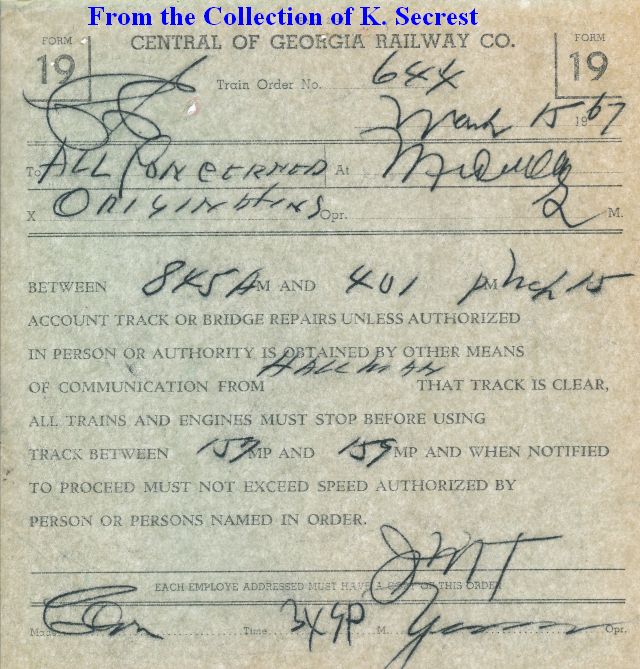 From the Collection of K. Secrest
FORM 19
CENTRAL OF GEORGIA RAILWAY CO.
FORM 19
Train Order No. 644
March 15 1967
To ALL CONCERNED At
X ORIGINATING Opr. M.
BETWEEN 845 A M AND 401 P M Mch 15
ACCOUNT TRACK OR BRIDGE REPAIRS UNLESS AUTHORIZED
IN PERSON OR AUTHORITY IS OBTAINED BY OTHER MEANS
OF COMMUNICATION FROM HALLMAN THAT TRACK IS CLEAR,
ALL TRAINS AND ENGINES MUST STOP BEFORE USING
TRACK BETWEEN 157 MP AND 159 MP AND WHEN NOTIFIED
TO PROCEED MUST NOT EXCEED SPEED AUTHORIZED BY
PERSON OR PERSONS NAMED IN ORDER.
JWT
EACH EMPLOYE ADDRESSED MUST HAVE A COPY OF THIS ORDER
Made Com Time M. Opr.